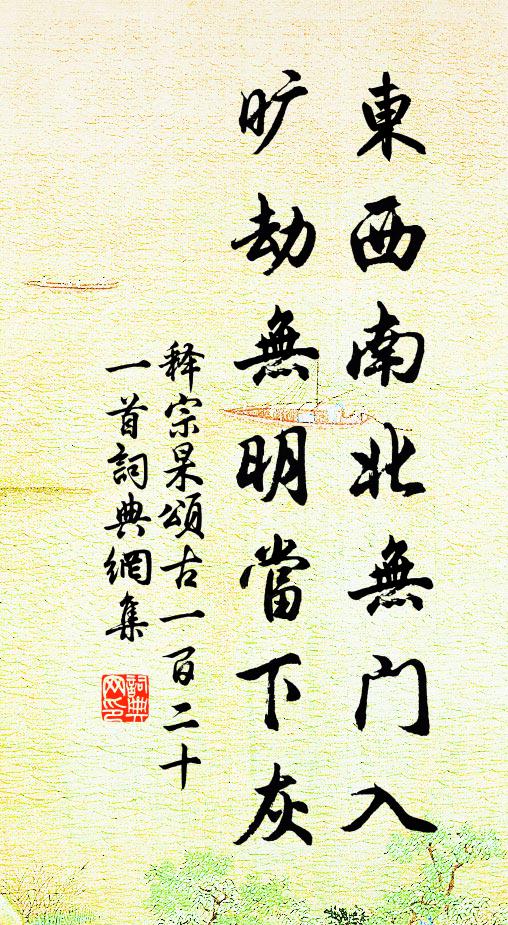 東西南北無门入
旷劫無明當下灰
释宗杲頌古一百二十
一首詞典網集
詞典网印